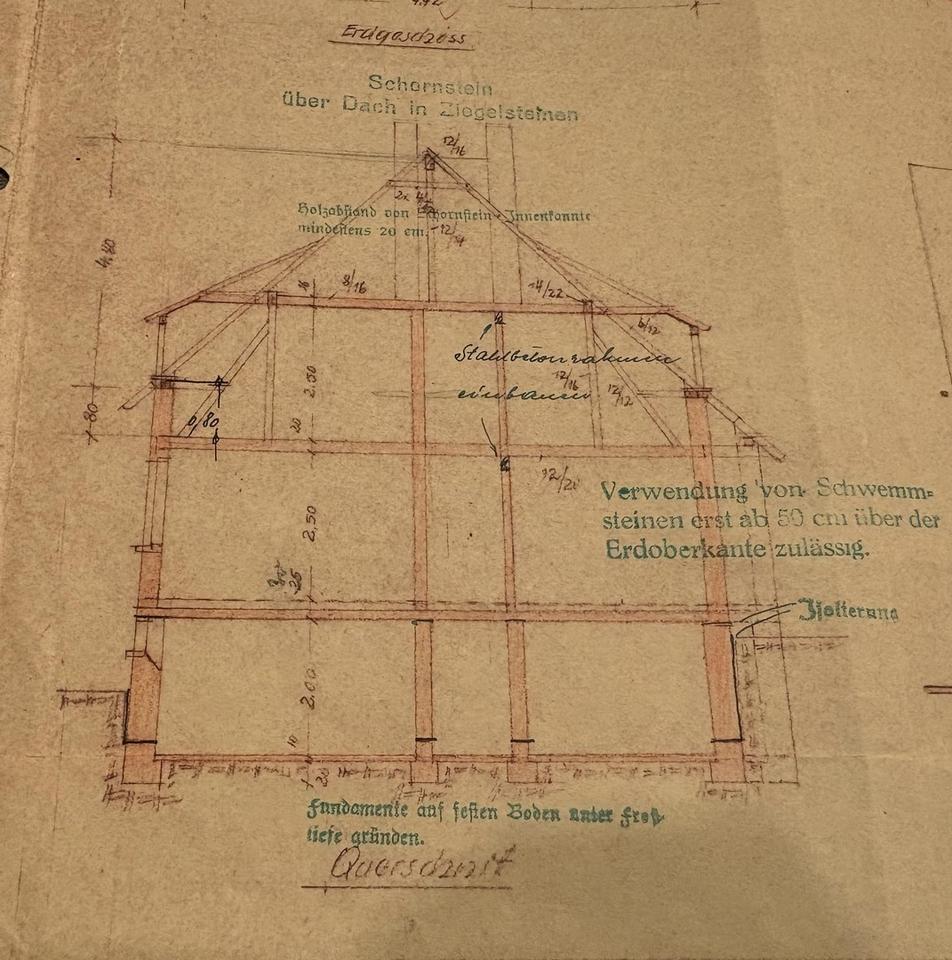 4.42
Erdgeschoss
Schornstein
über Dach in Ziegelsteinen
12/16
Holzabstand von Schornstein-Innenkante
mindestens 20 cm.
12/14
4,40
8/16
14/22
6/12
Stahlbetonrahmen
einbauen
2.50
12/16
12/12
80
0,80
20
12/20
Verwendung von Schwemm=
steinen erst ab 50 cm über der
Erdoberkante zulässig.
2,50
25
Isolierung
2.00
10
20
Fundamente auf festen Boden unter Frost-
tiefe gründen.
Querschnitt